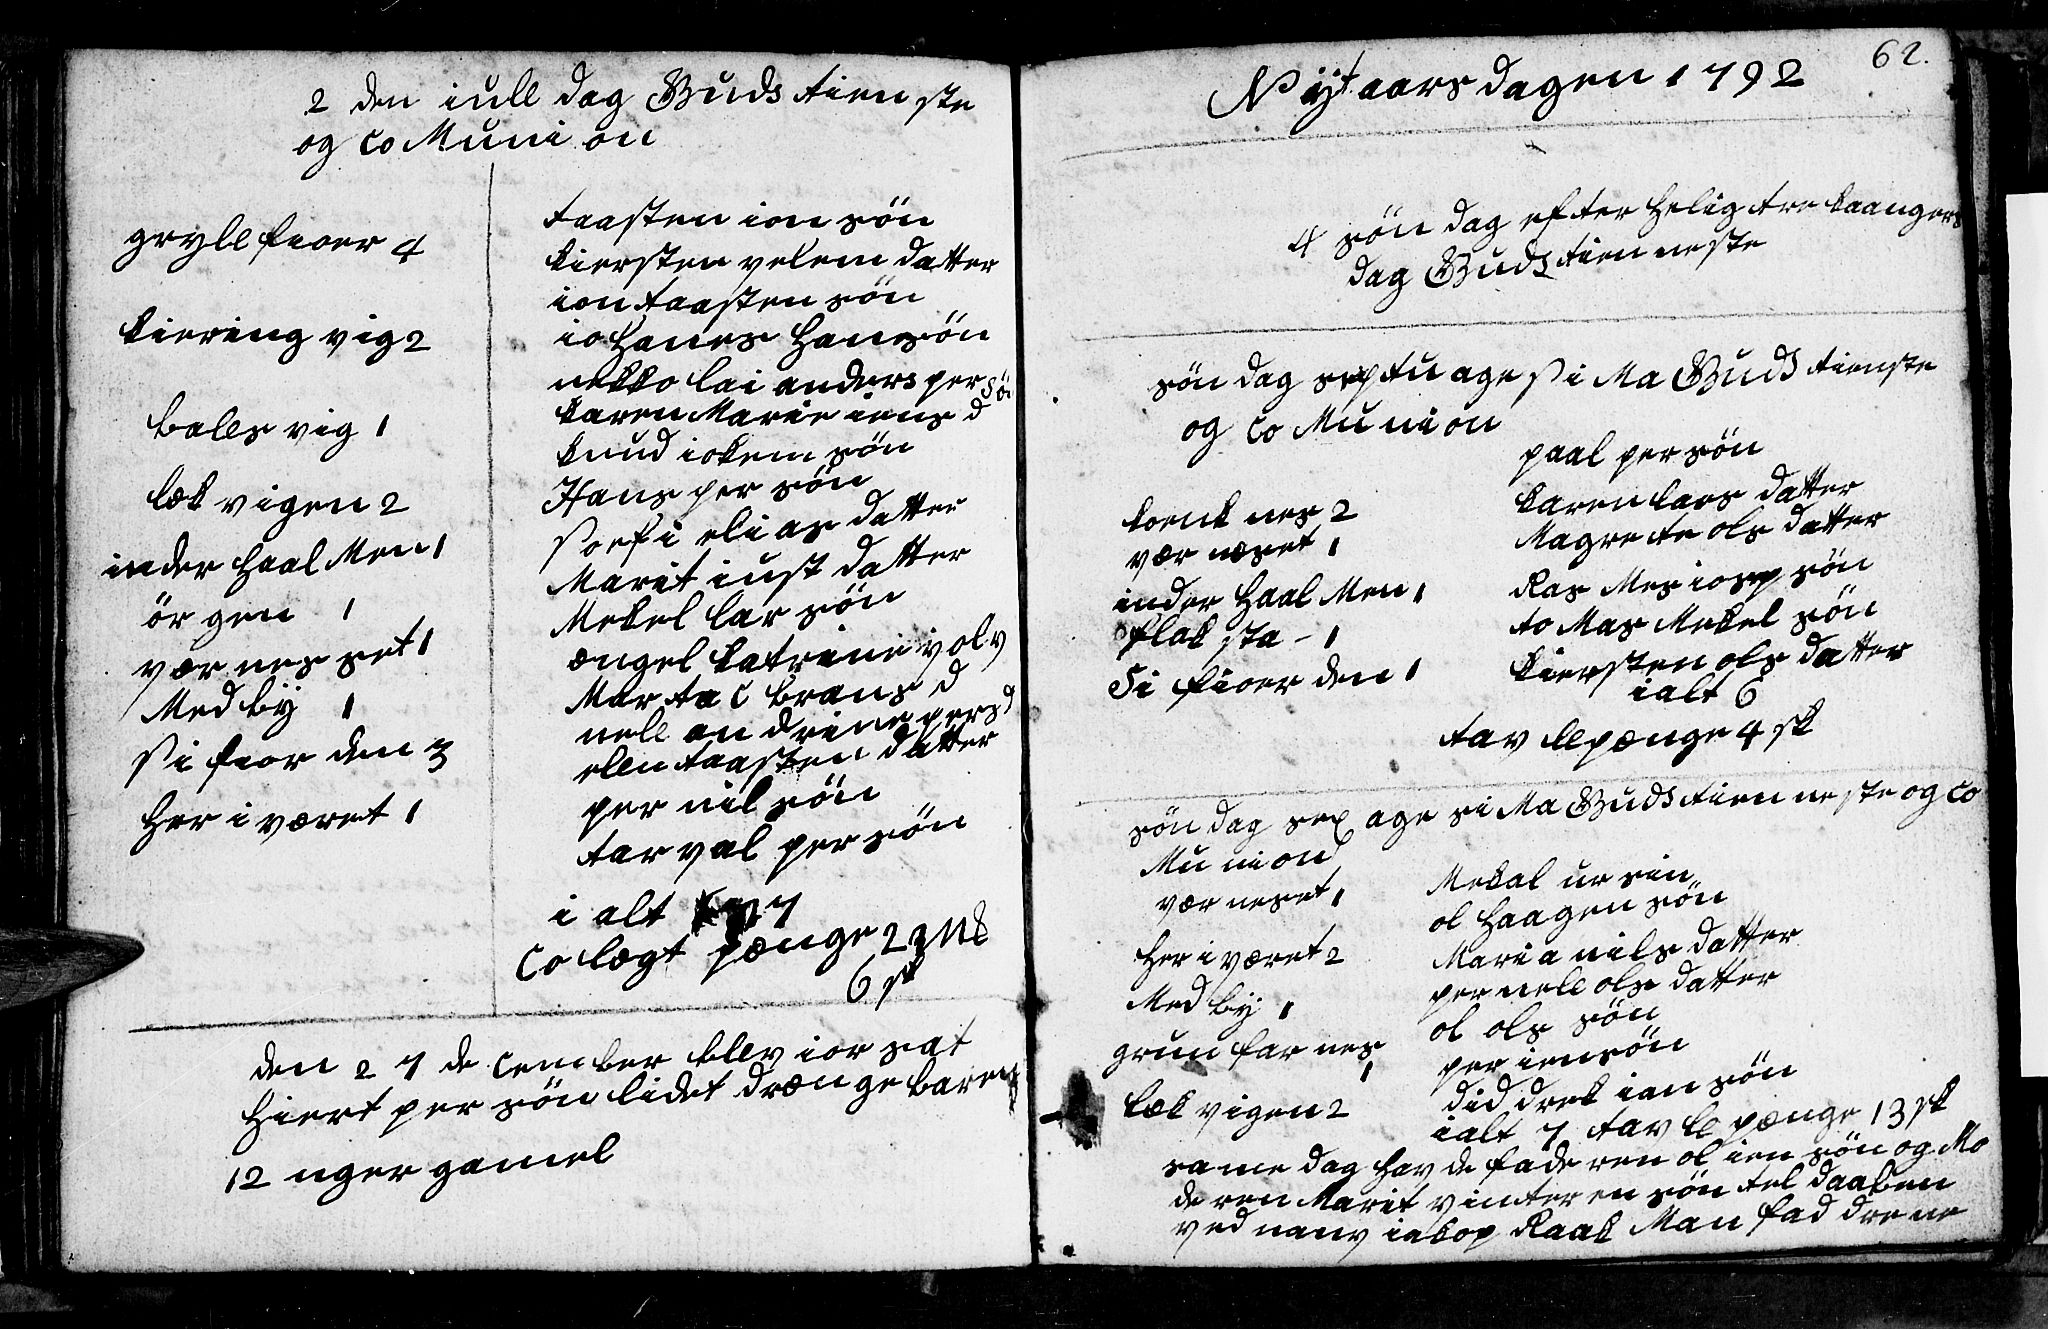 2 den iull dag Guds tien ste
og co Muni on
grylle fioer 4
kiering vig 2
bales vig 1
læk vigen 2
inder haal Men 1
ör gen 1
vær nes set 1
Med bÿ 1
si fior den 3
her i været 1
taasten ion søn
kiersten velem datter
ion taasten søn
io hanes hansøn
nekko lai anders per sø
karen Marie iens d
knud iokem søn
Hans per søn
soefi elias datter
Marit iust datter
Mekel lar søn
ængel katrine volv
Marta c brans d
nell an drine pers d
elen taasten datter
per nil søn
tarval per søn
i alt 17
Co lægt pænge 2 Mk
6 sk
den 27 de cember blev ior sat
hiert per søn lidet drænge baren
12 uger gamel
62.
Nÿt aars dagen 1792
4 søn dag efter helig tre kaangers
dag Guds tien neste
søn dag septu age si Ma Guds tienste
og co Mu ni on
koenk nes 2
vær næset 1
inder haal Men 1
flak sta - 1
Si fioer den 1
paal per søn
karen lars datter
Magrete ols datter
Ras Mes iosep søn
to Mas Mekel søn
kiersten ols datter
ialt 6
tav le pænge 4 sk
søn dag sex age si Ma Guds tien neste og co
Mu ni on
vær neset 1
her i været 2
Med bÿ 1
grun far nes
1
læk vigen 2
Mekal ur sin
ol haagen søn
Maria nils datter
per nell ols datter
ol ols søn
per iensøn
did drek ian søn
ialt 7 tav le pænge 13 sk
same dag hav de fade ren ol ien søn og Mo
de ren Marit vinter en søn tel daaben
ved nanv iakop Raak Man fad drene